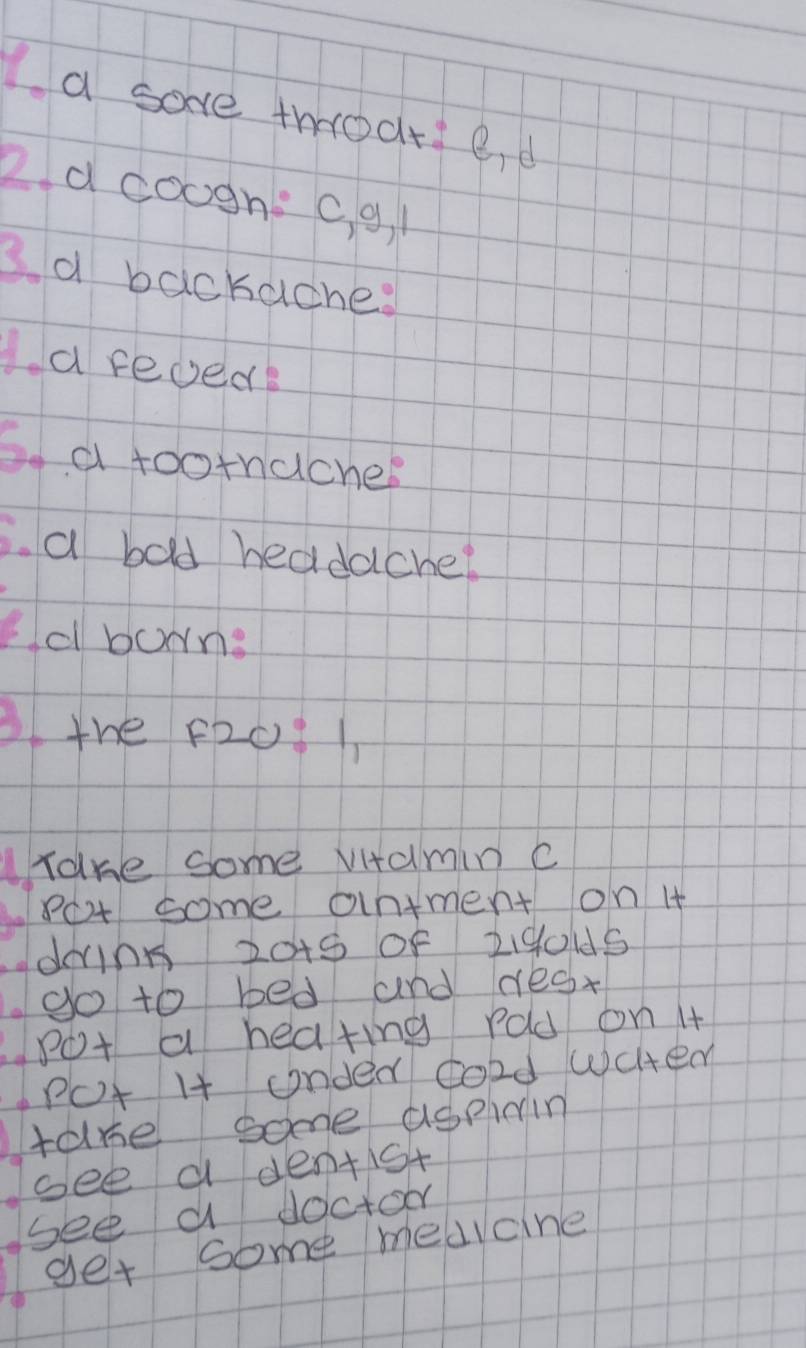 1. a sore throat: e, d
2. a cough: c, g, 1
3. a backache:
4. a fever:
5. a toothache:
a bad headache:
a burn:
8. the flu: 1,
take some vitamin c
put some ointment on it
drink lots of liquids
go to bed and rest
put a heating pad on it
put it under cold water
take some aspirin
see a dentist
see a doctor
get some medicine